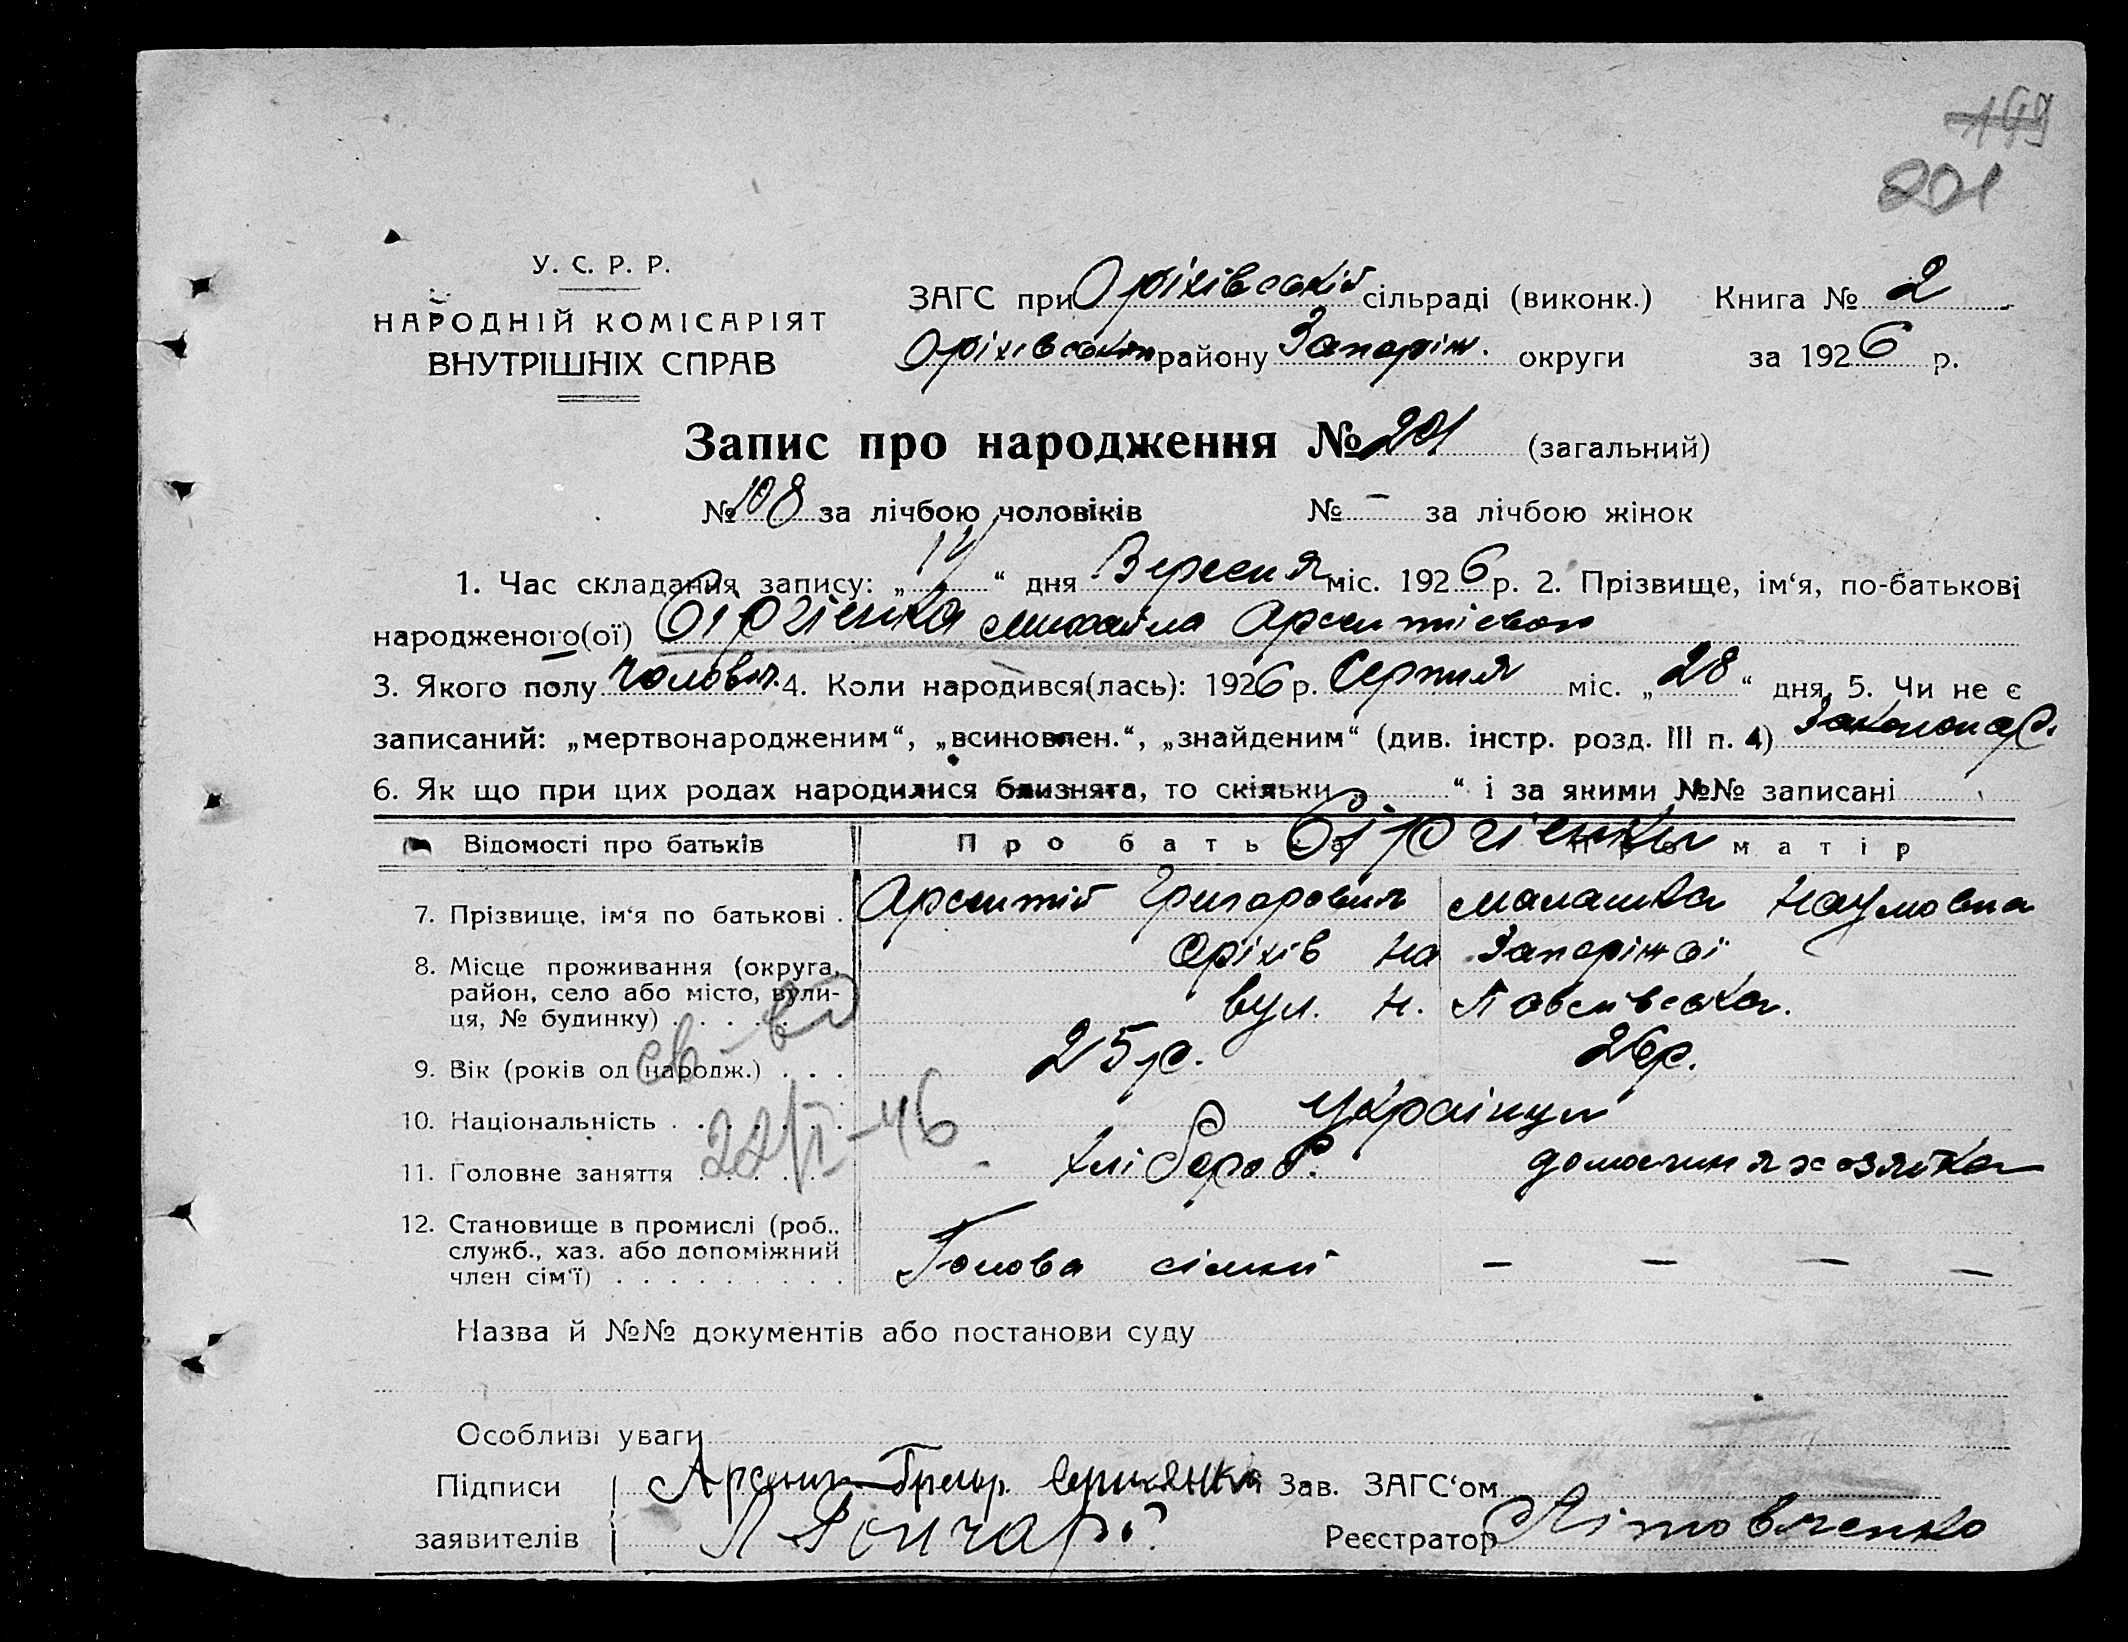 149
201
У. С. Р. Р.
НАРОДНІЙ КОМІСАРІЯТ
ВНУТРІШНІХ СПРАВ
ЗАГС при Оріхівській сільраді (виконк.) Книга № 2
Оріхівськ району Запоріж. округи за 1926 р.
Запис про народження № 201 (загальний)
№ 108 за лічбою чоловіків № – за лічбою жінок
1. Час складання запису: „ “ дня Вересня міс. 1926 р. 2. Прізвище, ім‘я, по-батькові
народженого(ої) Михайло
3. Якого полу чоловіч. 4. Коли народився(лась): 1926 р. Серпня міс. „28“ дня, 5. Чи не є
записаний: „мертвонародженим“, „всиновлен.“, „знайденим“ (див. інстр. розд. III п. 4)
6. Як що при цих родах народилися близнята, то скільки „ “ і за якими №№ записані
Відомості про батьків Про батька Про матір
7. Прізвище, ім‘я по батькові . Григорович Малашка Наумовна
8. Місце проживання (округа, Оріхів на Запоріжжі
район, село або місто, вули-
ця, № будинку) . . . . вул. Н.
9. Вік (років од народж.) . . . 25 р. 26 р.
10. Національність . . . . . . . Українці
11. Головне заняття . . . . . . хлібороб. домашня хозяйка
22/I-46
12. Становище в промислі (роб.,
служб., хаз. або допоміжний
член сім‘ї) . . . . . . . . . . Голова сімьи – – – –
Назва й №№ документів або постанови суду
Особливі уваги
Підписи Зав. ЗАГС‘ом
заявителів Реєстратор Літовченко